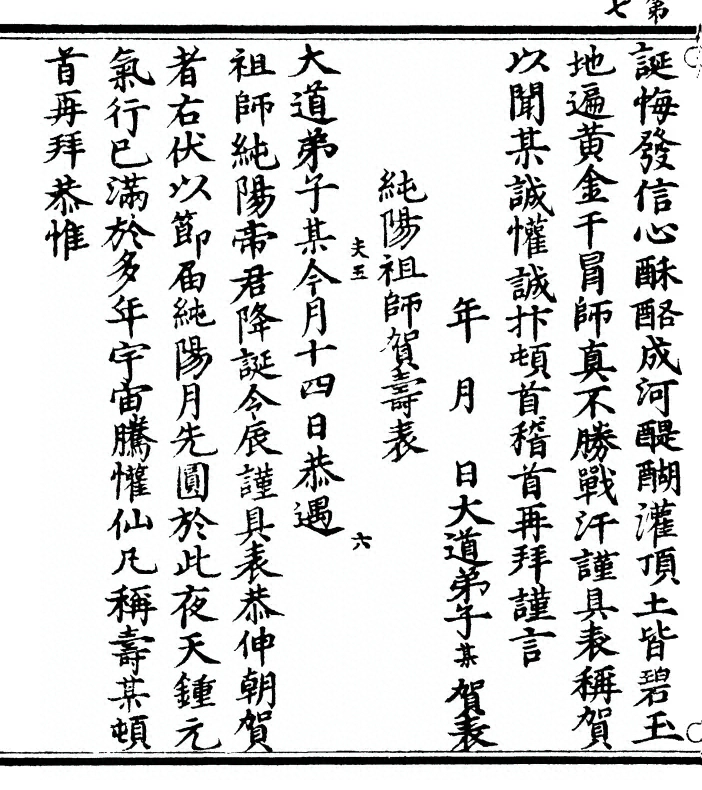 第
七
誕悔發信心酥酪成河醍醐灌頂土皆碧玉
地遍黃金干冒師真不勝戰汗謹具表稱賀
以聞某誠懽誠抃頓首稽首再拜謹言
年月日大道弟子某賀表
純陽祖師賀壽表
夫五
六
大道弟子某今月十四日恭遇
祖師純陽帝君降誕令辰謹具表恭伸朝賀
者右伏以節届純陽月先圓於此夜天鍾元
氣行已滿於多年宇宙騰懽仙凡稱壽某頓
首再拜恭惟